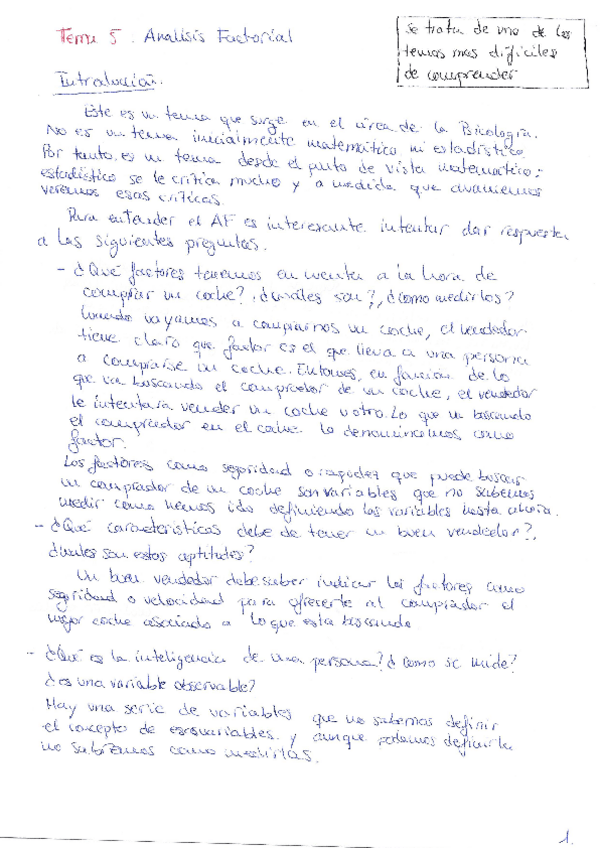 Tema 5. Análisis Factorial
se trata de uno de los
temas mas dificiles
de comprender
Introducción.
Este es un tema que surge en el área de la Psicología.
No es un tema inicialmente matemático ni estadístico.
Por tanto, es un tema desde el punto de vista matemático-
estadístico se le critica mucho y a medida que avancemos
veremos esas críticas.
Para entender el AF es interesante intentar dar respuesta
a las siguientes preguntas.
- ¿Qué factores tenemos en cuenta a la hora de
comprar un coche?, ¿cuáles son?, ¿cómo medirlos?
Cuando vayamos a comprarnos un coche, el vendedor
tiene claro que factor es el que lleva a una persona
a comprarse un coche. Entonces, en función de lo
que va buscando el comprador de un coche, el vendedor
le intentará vender un coche u otro. Lo que va buscando
el comprador en el coche lo denominamos como
factor.
Los factores como seguridad o rapidez que puede buscar
un comprador de un coche son variables que no sabemos
medir como hemos ido definiendo las variables hasta ahora.
- ¿Qué características debe de tener un buen vendedor?,
¿cuáles son estas aptitudes?
Un buen vendedor debe saber indicar los factores como
seguridad o velocidad para ofrecerle al comprador el
mejor coche asociado a lo que esta buscando
- ¿Qué es la inteligencia de una persona? ¿Cómo se mide?
¿es una variable observable?
Hay una serie de variables que no sabemos definir
el concepto de esas variables y aunque podamos definirla
no sabremos como medirlas.
1